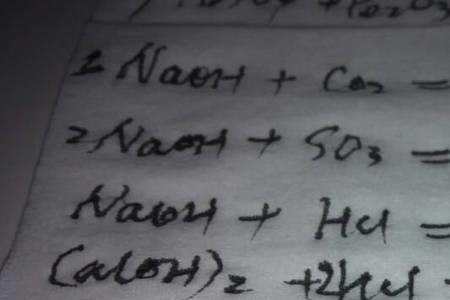 2 NaOH + CO2 =
2 NaOH + SO3 =
NaOH + HCl =
Ca(OH)2 + 2HCl